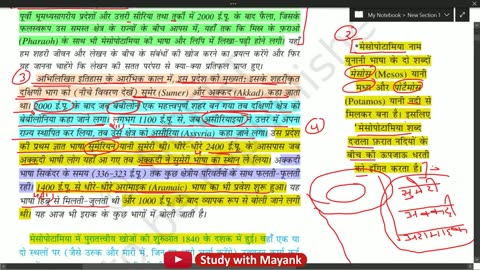 My Notebook > New Section 1
पूर्वी भूमध्यसागरीय प्रदेशों और उत्तरी सीरिया तथा तुर्की में 2000 ई.पू. के बाद फैला, जिसके
फलस्वरूप उस समस्त क्षेत्र के राज्यों के बीच आपस में, यहाँ तक कि मिस्र के फ़राओ
(Pharaoh) के साथ भी मेसोपोटामिया की भाषा और लिपि में लिखा-पढ़ी होने लगी। यहाँ
हम शहरी जीवन और लेखन के बीच के संबंधों की खोज करने का प्रयत्न करेंगे और फिर
यह जानना चाहेंगे कि लेखन की सतत परंपरा से क्या-क्या प्रतिफल प्राप्त हुए।
3 अभिलिखित इतिहास के आरंभिक काल में, इस प्रदेश को मुख्यतः इसके शहरीकृत
दक्षिणी भाग को (नीचे विवरण देखें) सुमेर (Sumer) और अक्कद (Akkad) कहा जाता
था। 2000 ई.पू. के बाद जब बेबीलोन एक महत्त्वपूर्ण शहर बन गया तब दक्षिणी क्षेत्र को
बेबीलोनिया कहा जाने लगा। लगभग 1100 ई.पू. से, जब असीरियाइयों ने उत्तर में अपना
राज्य स्थापित कर लिया, तब उस क्षेत्र को असीरिया (Assyria) कहा जाने लगा। उस प्रदेश
की प्रथम ज्ञात भाषा सुमेरियन यानी सुमेरी थी। धीरे-धीरे 2400 ई.पू. के आसपास
अक्कदी भाषी लोग यहाँ आ गए तब अक्कदी ने सुमेरी भाषा का स्थान ले लिया। अक्कदी
भाषा सिकंदर के समय (336-323 ई.पू.) तक कुछ क्षेत्रीय परिवर्तनों के साथ फलती-फूलती
रही। 1400 ई.पू. से धीरे-धीरे अरामाइक (Aramaic) भाषा का भी प्रवेश शुरू हुआ। यह
भाषा हिब्रू से मिलती-जुलती थी और 1000 ई.पू. के बाद व्यापक रूप से बोली जाने लगी
थी। यह आज भी इराक के कुछ भागों में बोली जाती है।
मेसोपोटामिया में पुरातत्त्वीय खोजों की शुरुआत 1840 के दशक में हुई। वहाँ एक या
दो स्थलों पर (जैसे उरुक और मारी में, जिन
2
* मेसोपोटामिया नाम
यूनानी भाषा के दो शब्दों
मेसोस (Mesos)
यानी मध्य और पोटैमोस
(Potamos) यानी नदी से
मिलकर बना है। इसलिए
4 मेसोपोटामिया शब्द
दजला फ़रात नदियों के
बीच की उपजाऊ धरती
को इंगित करता है।
सुमेरी
अक्कदी
अरामाइक
Study with Mayank